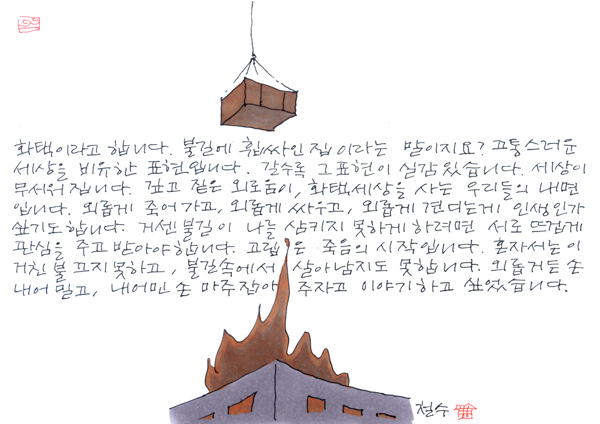 화택이라고 합니다. 불길에 휩싸인 집이라는 말이지요? 고통스러운
세상을 비유한 표현입니다. 갈수록 그 표현이 실감있습니다. 세상이
무서워집니다. 깊고 짙은 외로움이, 화택세상을 사는 우리들의 내면
입니다. 외롭게 죽어가고, 외롭게 싸우고, 외롭게 견디는게 인생인가
싶기도 합니다. 거센 불길이 나를 삼키지 못하게 하려면 서로 뜨겁게
관심을 주고 받아야 합니다. 고립은 죽음의 시작입니다. 혼자서는 이
거친 불 끄지 못하고, 불길속에서 살아남지도 못합니다. 외롭거든 손
내어 밀고, 내어민 손 마주잡아 주자고 이야기하고 싶었습니다.
철수